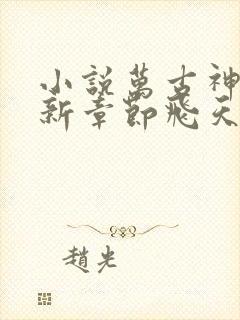 小説萬古神
新章節飛天
趙光